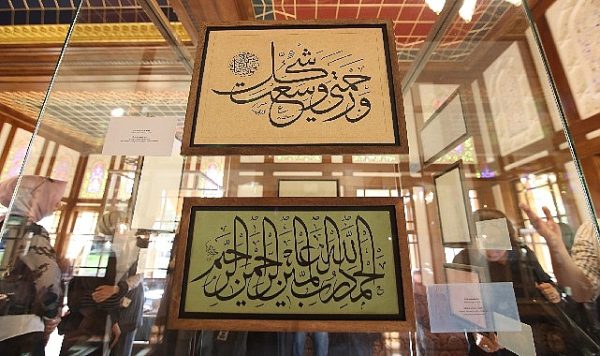 ورحمتي وسعت كل شيء
الحمد لله رب العالمين الرحمن الرحيم